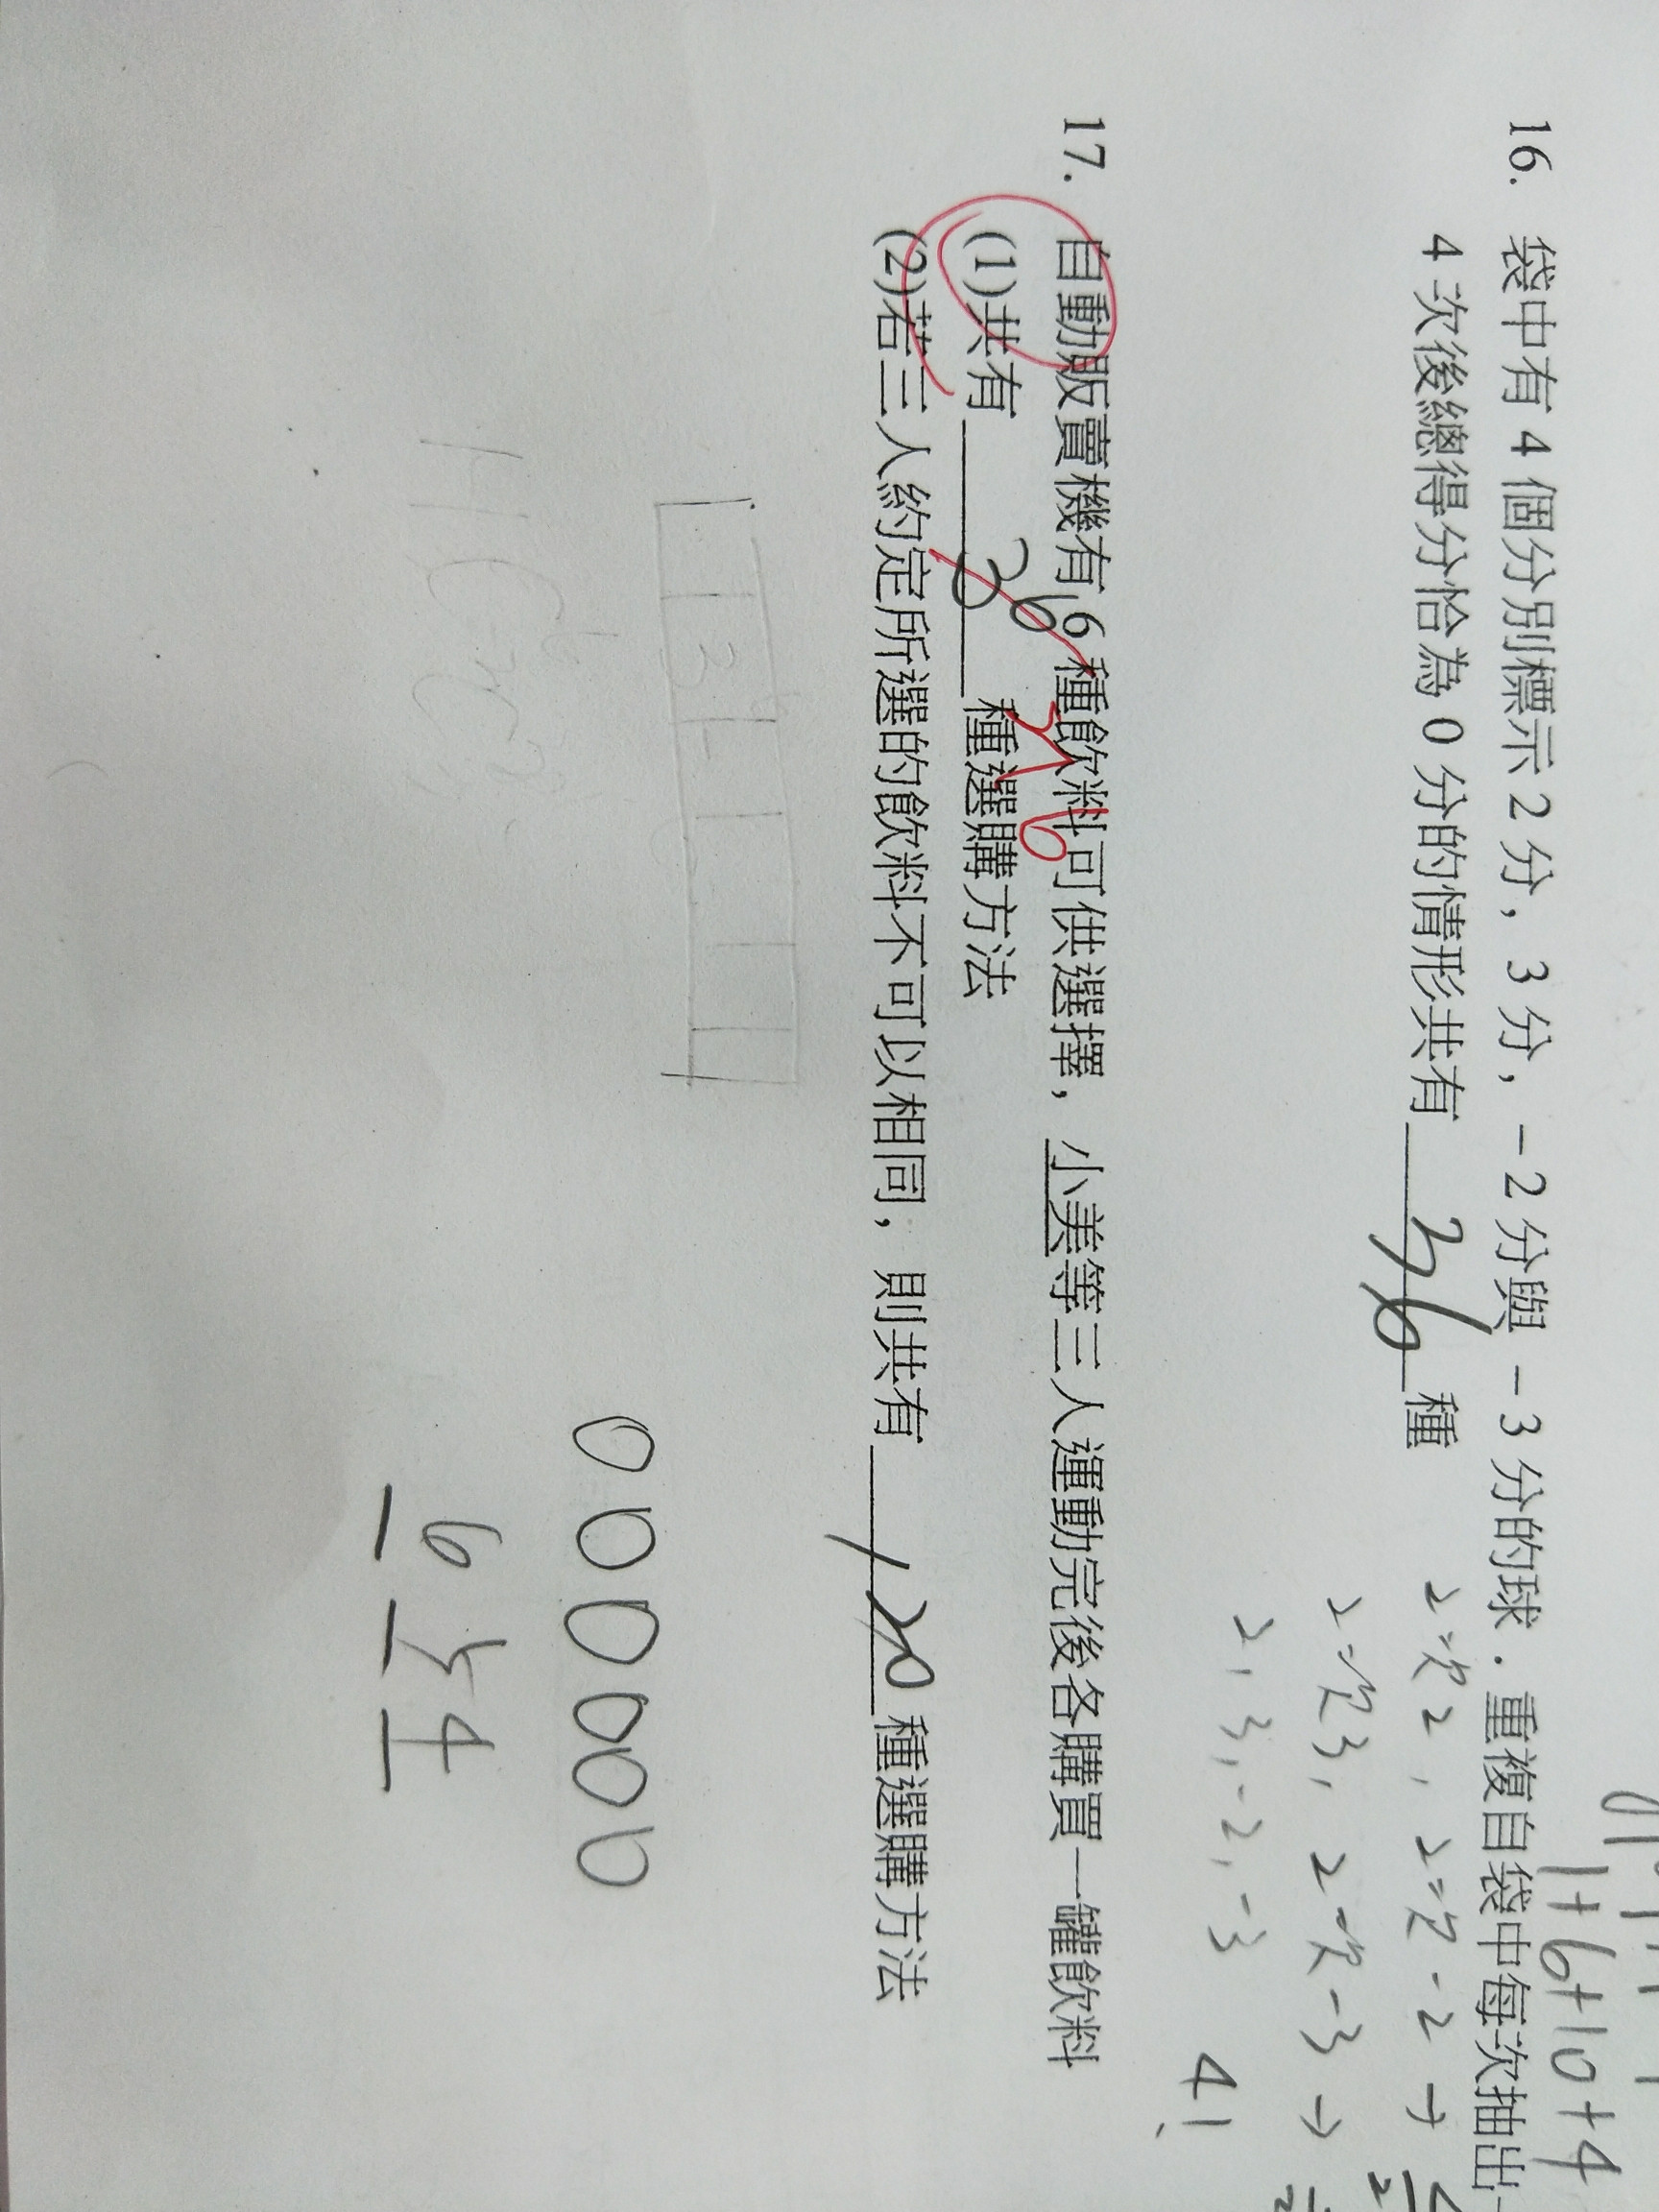 1+6+10+4
16. 袋中有 4 個分別標示 2 分，3 分，－2 分與 －3 分的球．重複自袋中每次抽出
4 次後總得分恰為 0 分的情形共有 36 種
2次2，2次-2 →
2次3，2次-3 →
2，3，-2，-3 4!
17. 自動販賣機有 6 種飲料可供選擇，小美等三人運動完後各購買一罐飲料
(1)共有 36 種選購方法
(2)若三人約定所選的飲料不可以相同，則共有 120 種選購方法
000000
6 5 4